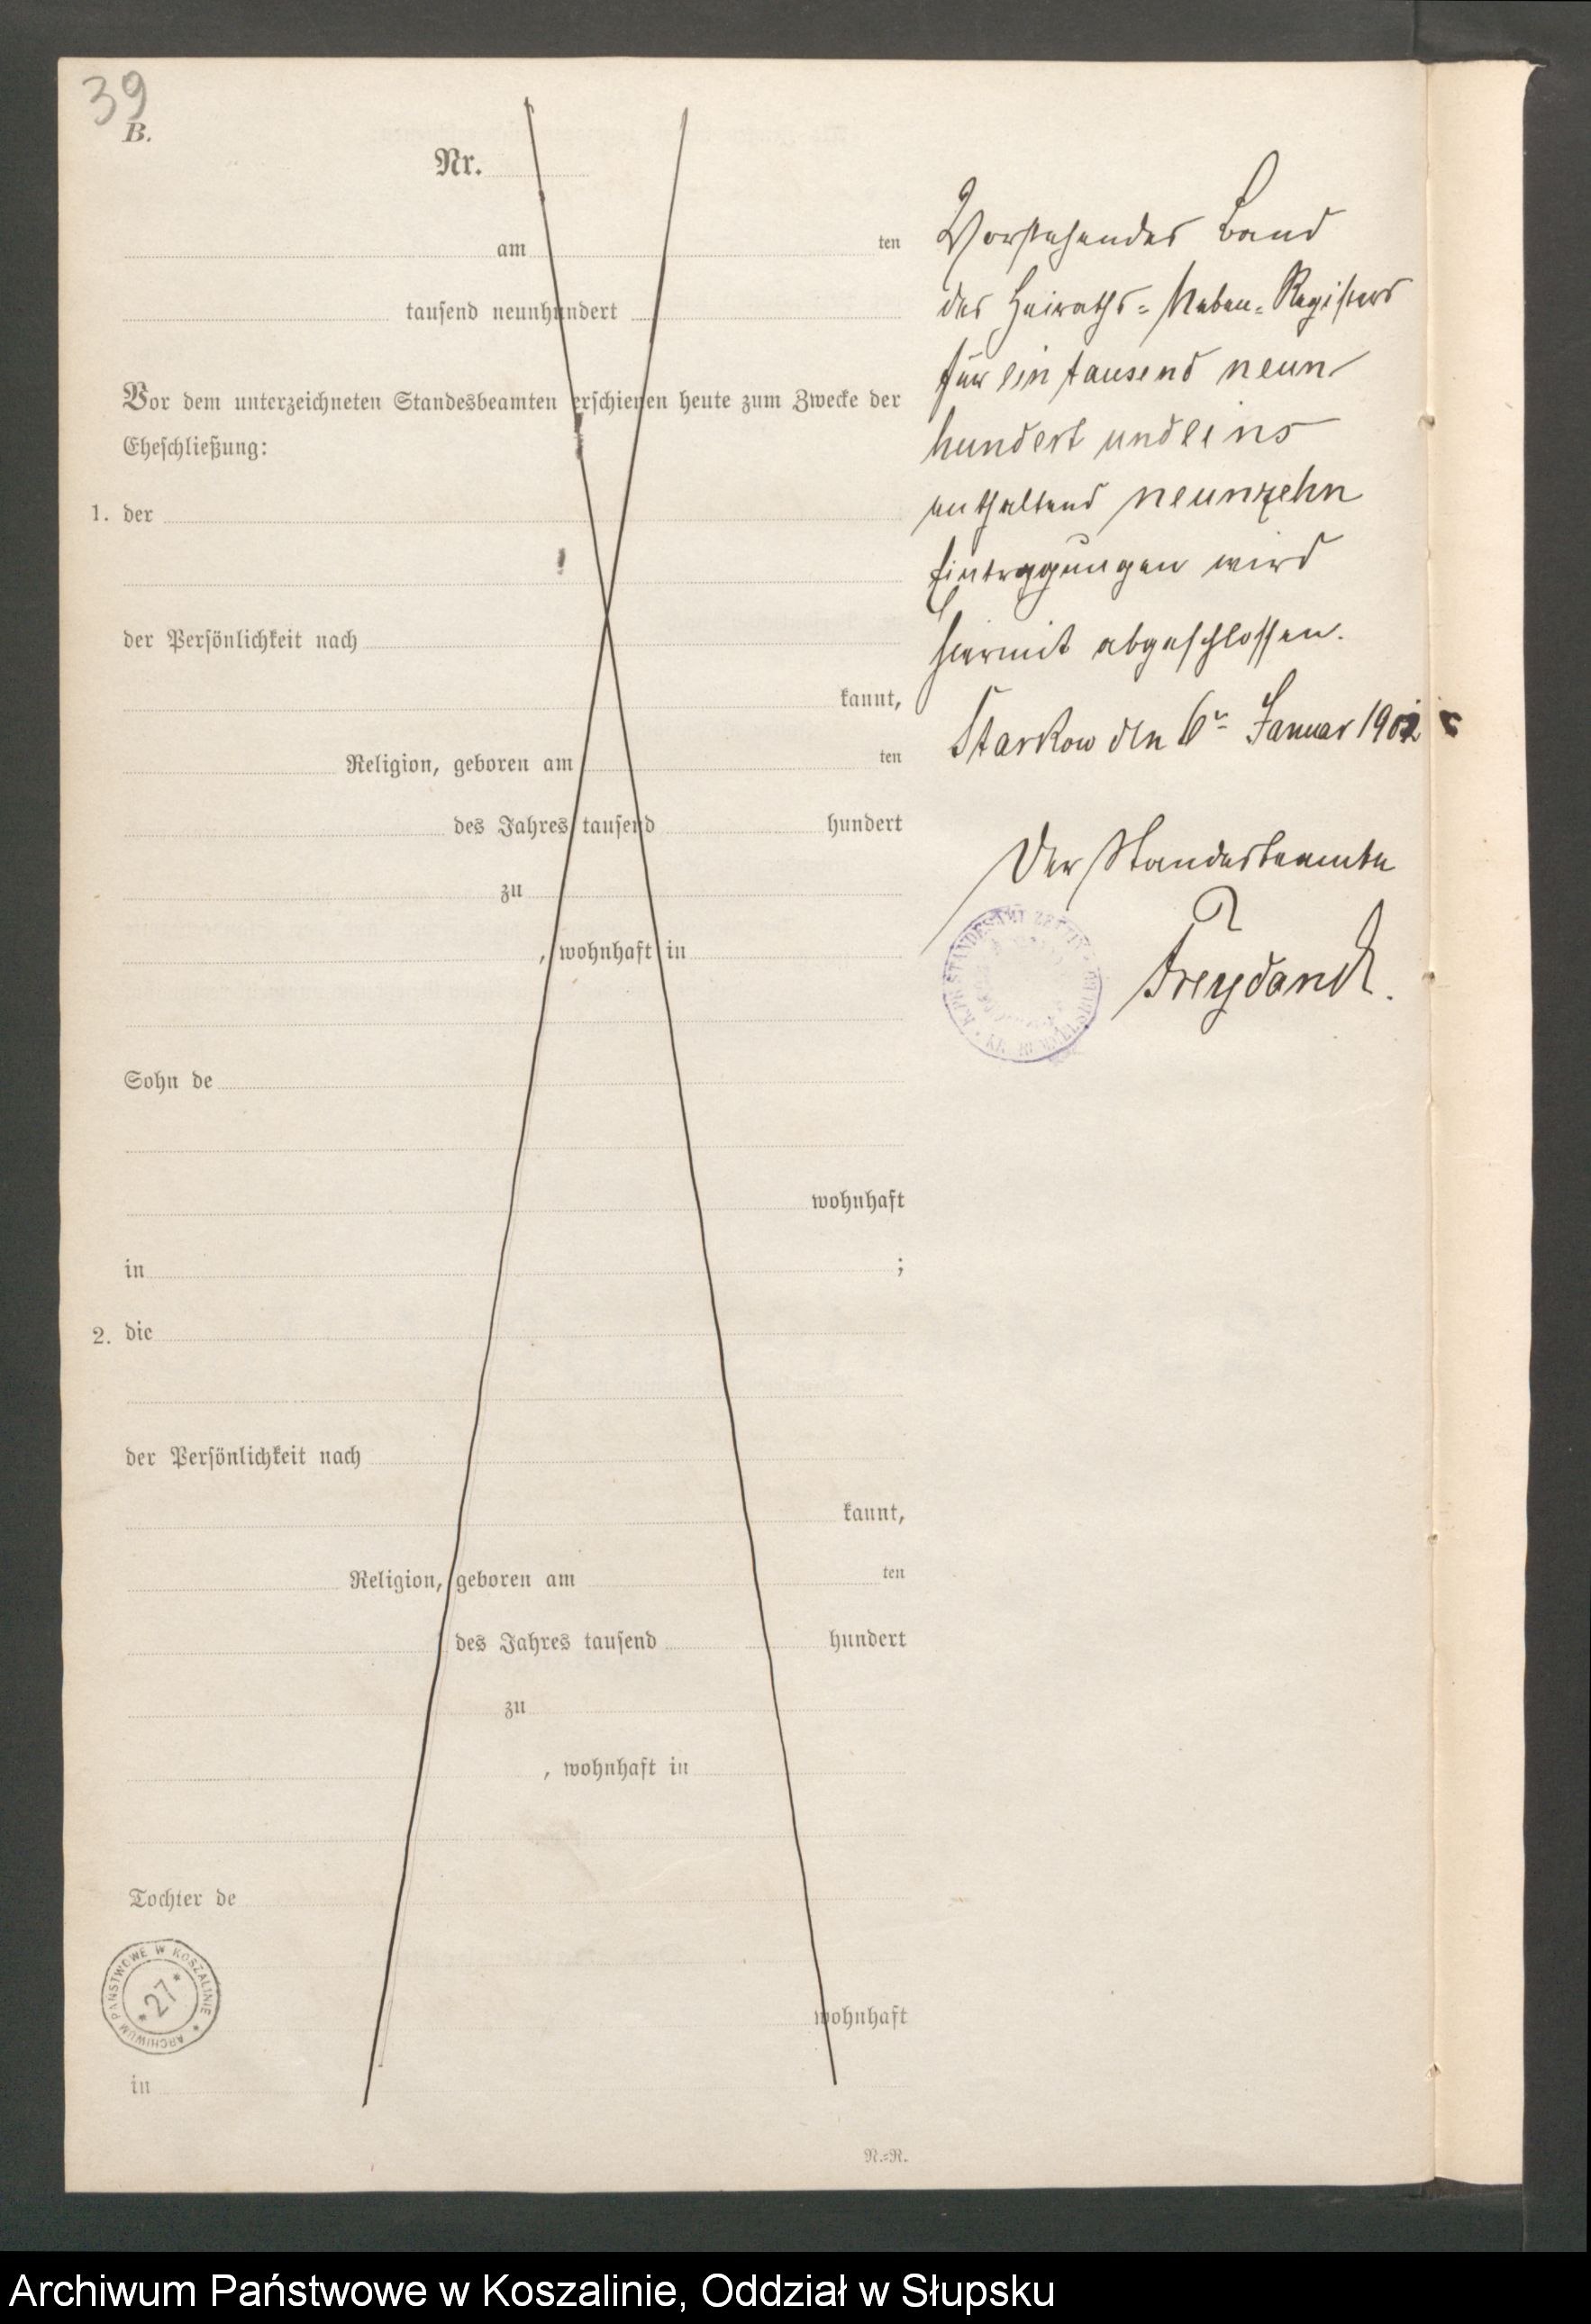 39
B.
Nr.
am ten
tausend neunhundert
Vor dem unterzeichneten Standesbeamten erschienen heute zum Zwecke der
Eheschließung:
1. der
der Persönlichkeit nach
kannt,
Religion, geboren am ten
des Jahres tausend hundert
zu
, wohnhaft in
Sohn de
wohnhaft
in ;
2. die
der Persönlichkeit nach
kannt,
Religion, geboren am ten
des Jahres tausend hundert
zu
, wohnhaft in
Tochter de
wohnhaft
in
N.=R.
Vorstehendes Band
des Heiraths=Neben=Registers
für ein tausend neun
hundert und eins
enthaltend neunzehn
Eintragungen wird
hiermit abgeschlossen.
Starkow den 6n Januar 1902
Der Standesbeamte
Freydanck.
STANDESAMT
ARCHIWUM PAŃSTWOWE W KOSZALINIE
* 27 *
Archiwum Państwowe w Koszalinie, Oddział w Słupsku